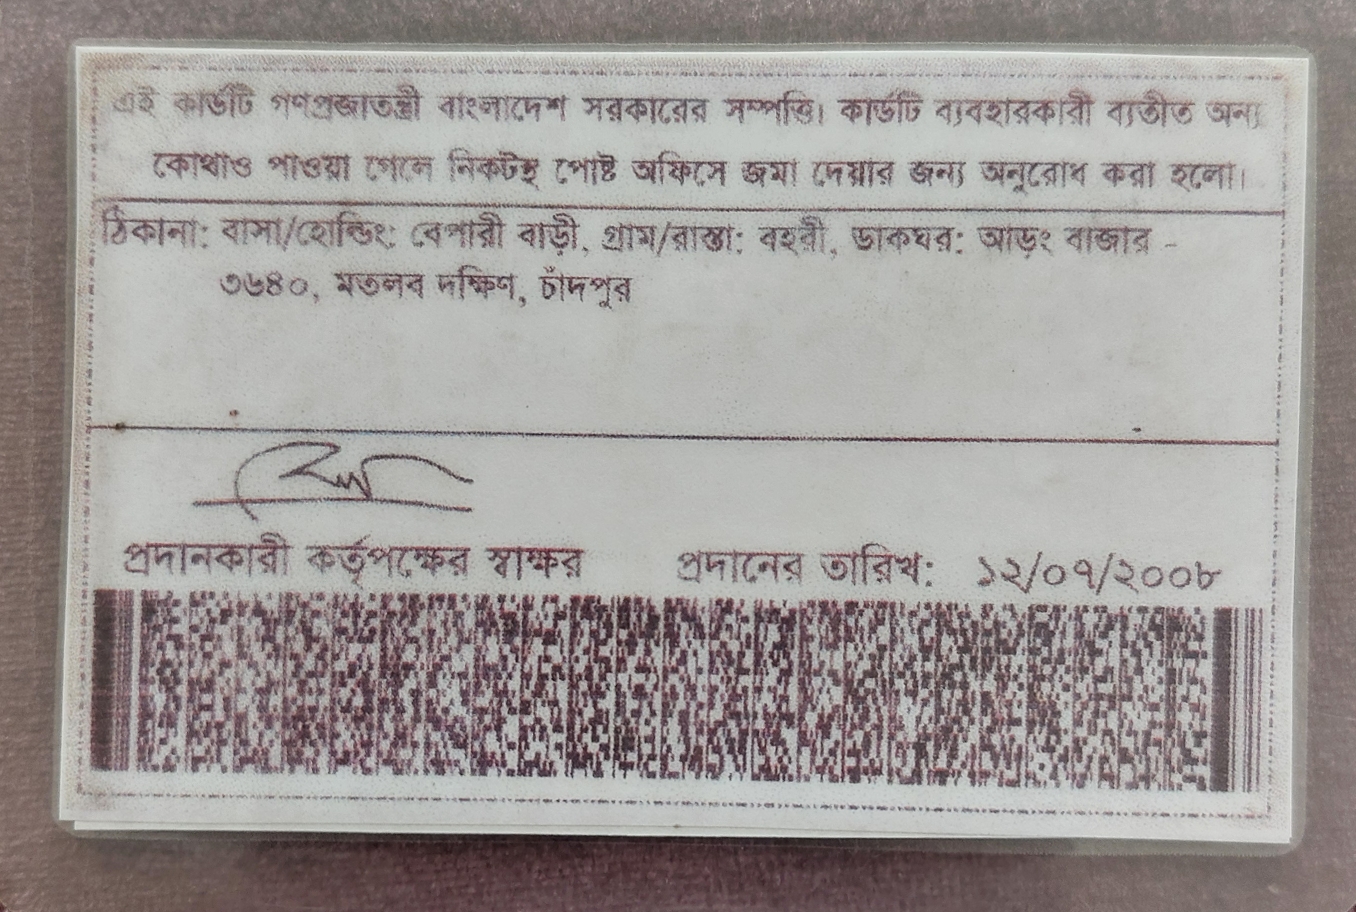 এই কার্ডটি গণপ্রজাতন্ত্রী বাংলাদেশ সরকারের সম্পত্তি। কার্ডটি ব্যবহারকারী ব্যতীত অন্য
কোথাও পাওয়া গেলে নিকটস্থ পোষ্ট অফিসে জমা দেয়ার জন্য অনুরোধ করা হলো।
ঠিকানা: বাসা/হোল্ডিং: বেপারী বাড়ী, গ্রাম/রাস্তা: বহরী, ডাকঘর: আড়ং বাজার -
৩৬৪০, মতলব দক্ষিণ, চাঁদপুর
প্রদানকারী কর্তৃপক্ষের স্বাক্ষর প্রদানের তারিখ: ১২/০৭/২০০৮